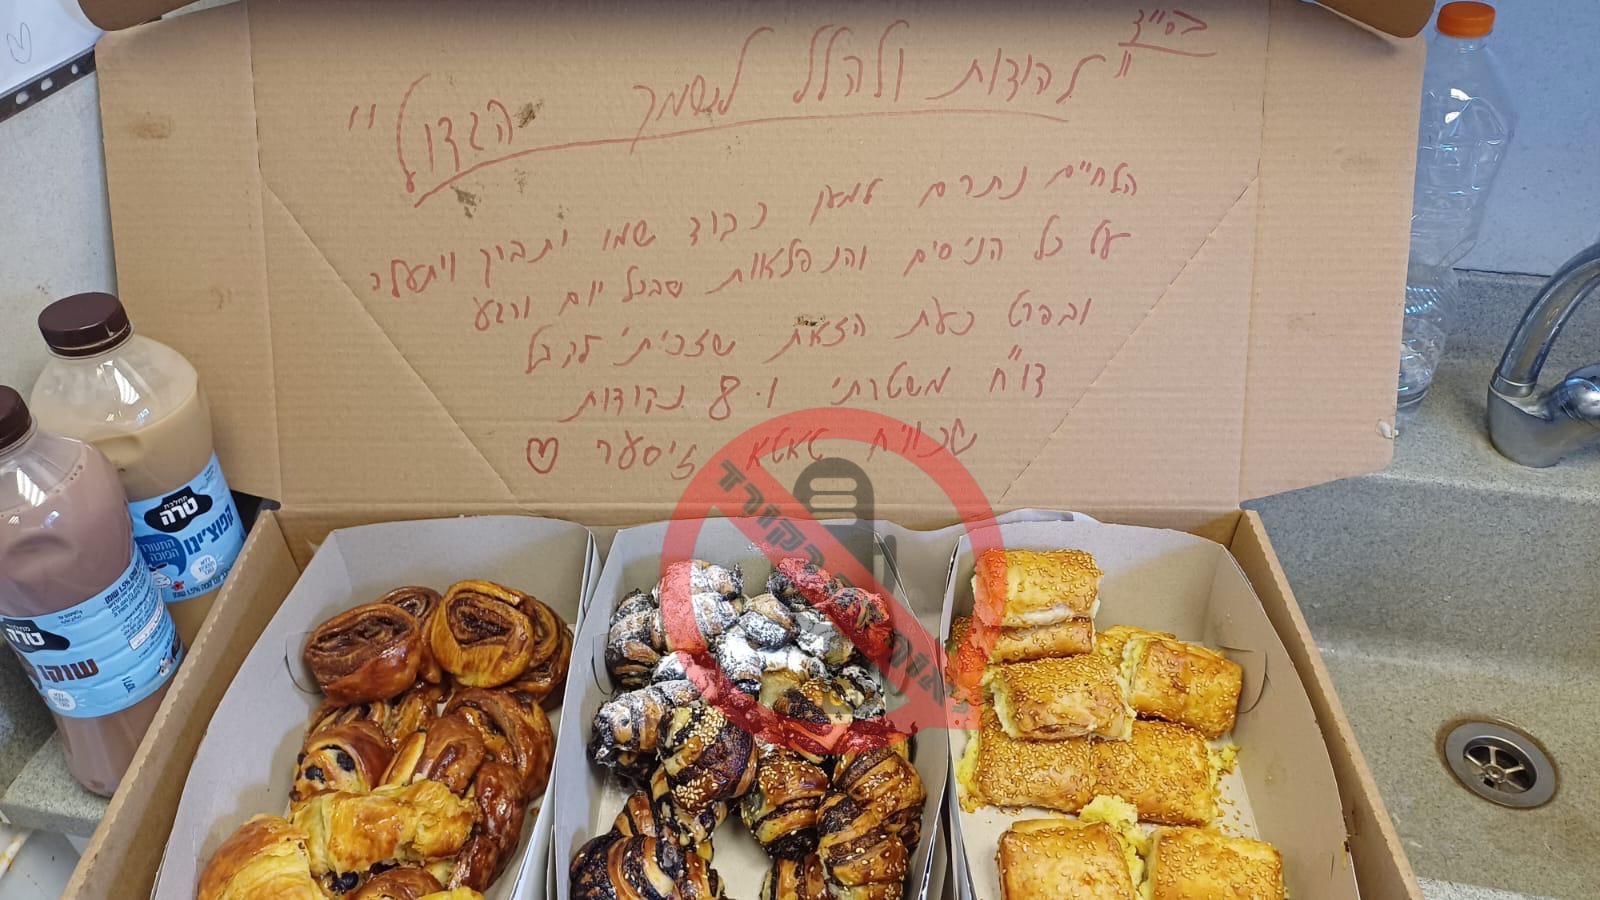 בס״ד
"להודות ולהלל לשמך הגדול"
הלחיים נתרם למען כבוד שמו יתברך ויתעלה
על כל הניסים והנפלאות שבכל יום ורגע
ובפרט כעת הזאת שזכיתי לקבל
דו"ח משטרתי ו-8 נקודות
שכוייח טאטא זיסער ♡
טרה
קפוצ'ינו
טרה
שוקו